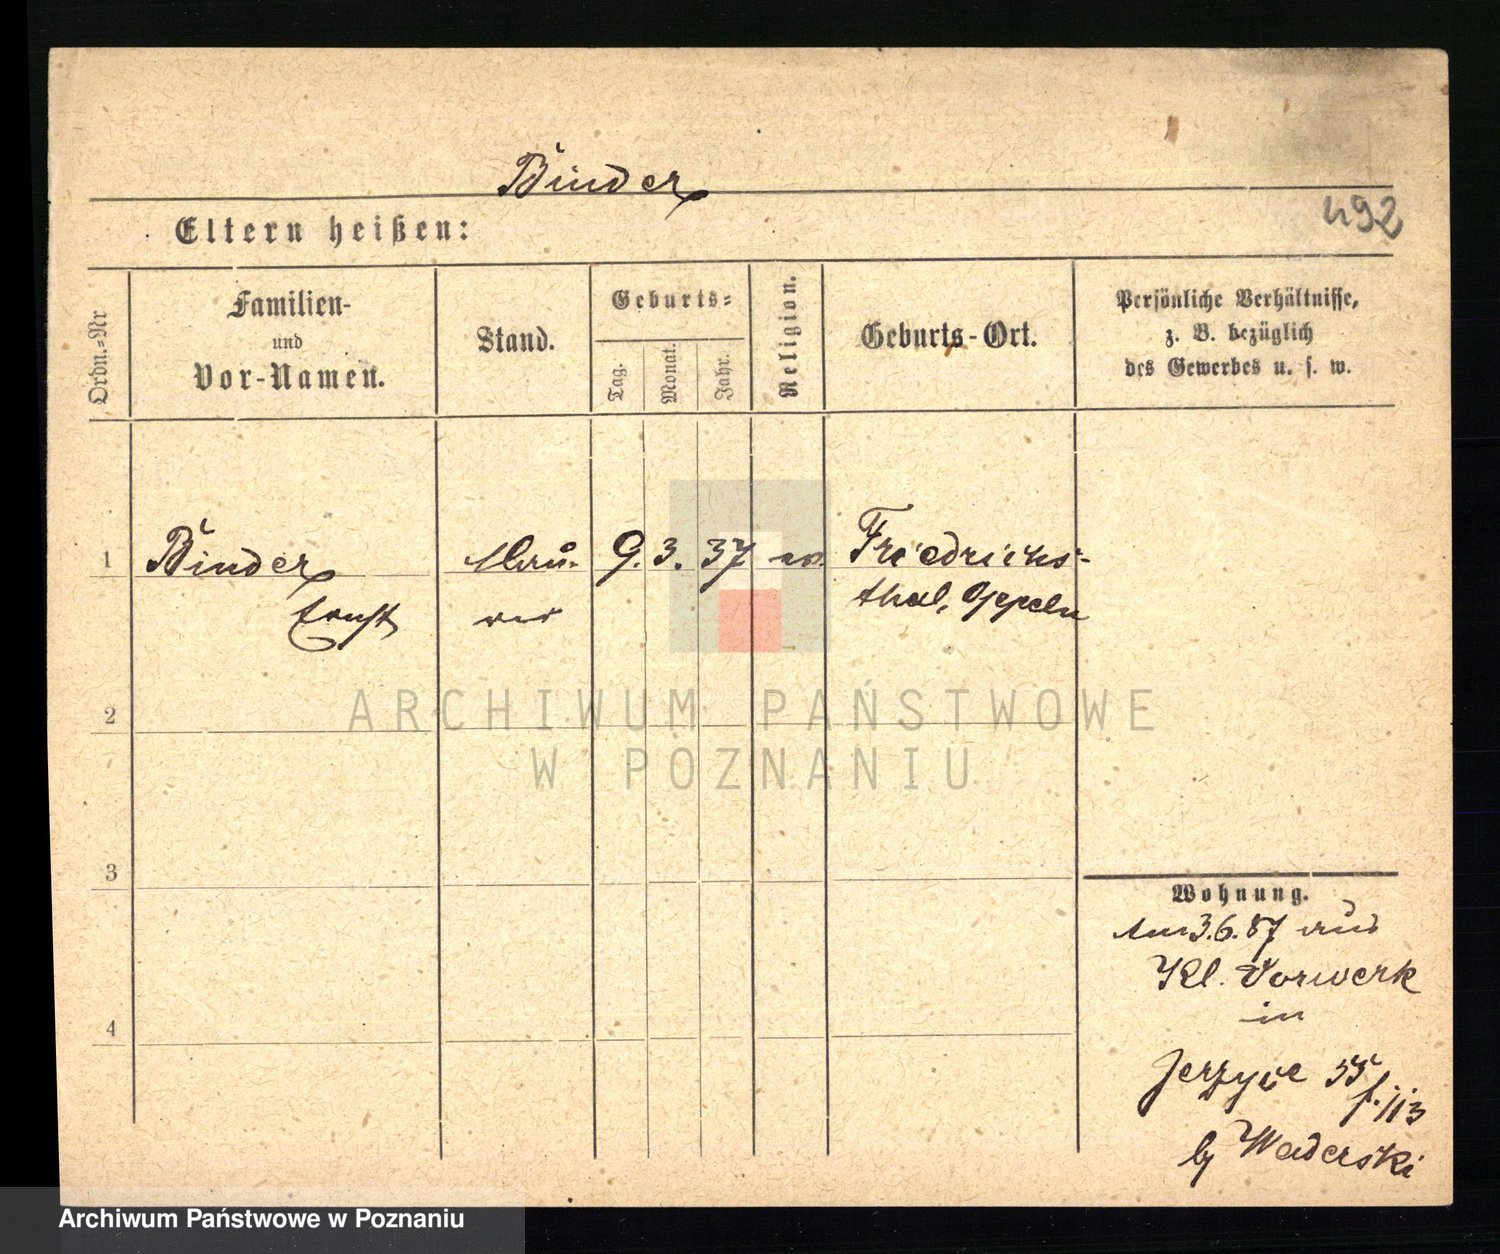 Binder
492
Eltern heißen:
Ordn.=Nr
Familien-
und
Vor-Namen.
Stand.
Geburts=
Tag.
Monat.
Jahr.
Religion.
Geburts-Ort.
Persönliche Verhältnisse,
z. B. bezüglich
des Gewerbes u. s. w.
1 Binder Mau- 9. 3. 37 ev. Friedrichs-
Ernst rer thal, Oppeln
ARCHIWUM PAŃSTWOWE
W POZNANIU
2
3
4
Wohnung.
Am 3.6.87 aus
Kl. Vorwerk
in
Jerzyce 55
113
b/ Waderski
Archiwum Państwowe w Poznaniu